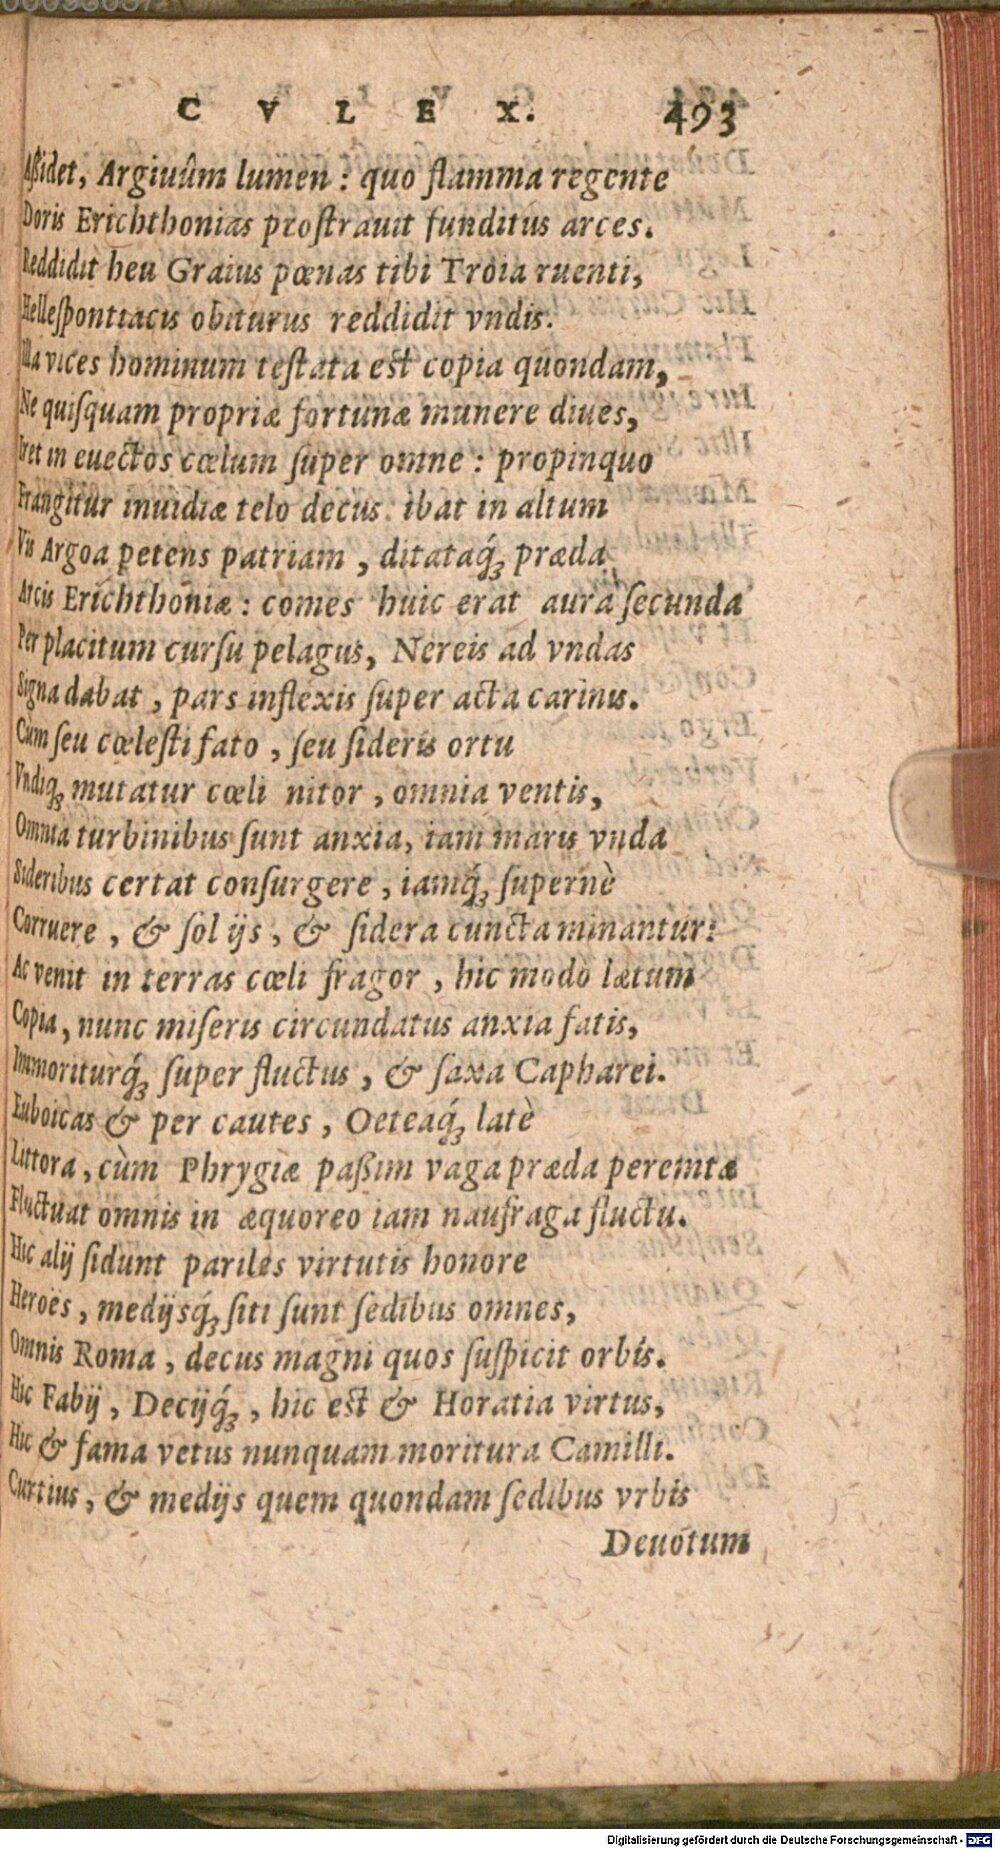 C V L E X. 493
Aſſidet, Argiuûm lumen : quo flamma regente
Doris Erichthonias proſtrauit funditus arces.
Reddidit heu Graius pœnas tibi Troia ruenti,
Helleſpontiacis obiturus reddidit vndis.
Illa vices hominum teſtata eſt copia quondam,
Ne quiſquam propriæ fortunæ munere diues,
Iret in euectos cœlum ſuper omne : propinquo
Frangitur inuidiæ telo decus. ibat in altum
Vis Argoa petens patriam , ditataq́ꝫ præda
Arcis Erichthoniæ : comes huic erat aura ſecunda
Per placitum curſu pelagus, Nereis ad vndas
Signa dabat , pars inflexis ſuper acta carinis.
Cùm ſeu cœleſti fato , ſeu ſideris ortu
Vndiqꝫ mutatur cœli nitor , omnia ventis,
Omnia turbinibus ſunt anxia, iam maris vnda
Sideribus certat conſurgere , iamq́ꝫ ſupernè
Corruere , & ſol ijs , & ſidera cuncta minantur:
Ac venit in terras cœli fragor , hic modò lætum
Copia, nunc miſeris circundatus anxia fatis,
Immoriturq́ꝫ ſuper fluctus , & ſaxa Capharei.
Euboicas & per cautes , Oeteaq́ꝫ latè
Littora , cùm Phrygiæ paßim vaga præda peremtæ
Fluctuat omnis in æquoreo iam naufraga fluctu.
Hic alij ſidunt pariles virtutis honore
Heroës , medijsq́ꝫ ſiti ſunt ſedibus omnes,
Omnis Roma , decus magni quos ſuſpicit orbis.
Hic Fabij , Decijq́ꝫ , hic eſt & Horatia virtus,
Hic & fama vetus nunquam moritura Camilli.
Curtius , & medijs quem quondam ſedibus vrbis
Deuotum
Digitalisierung gefördert durch die Deutsche Forschungsgemeinschaft - DFG